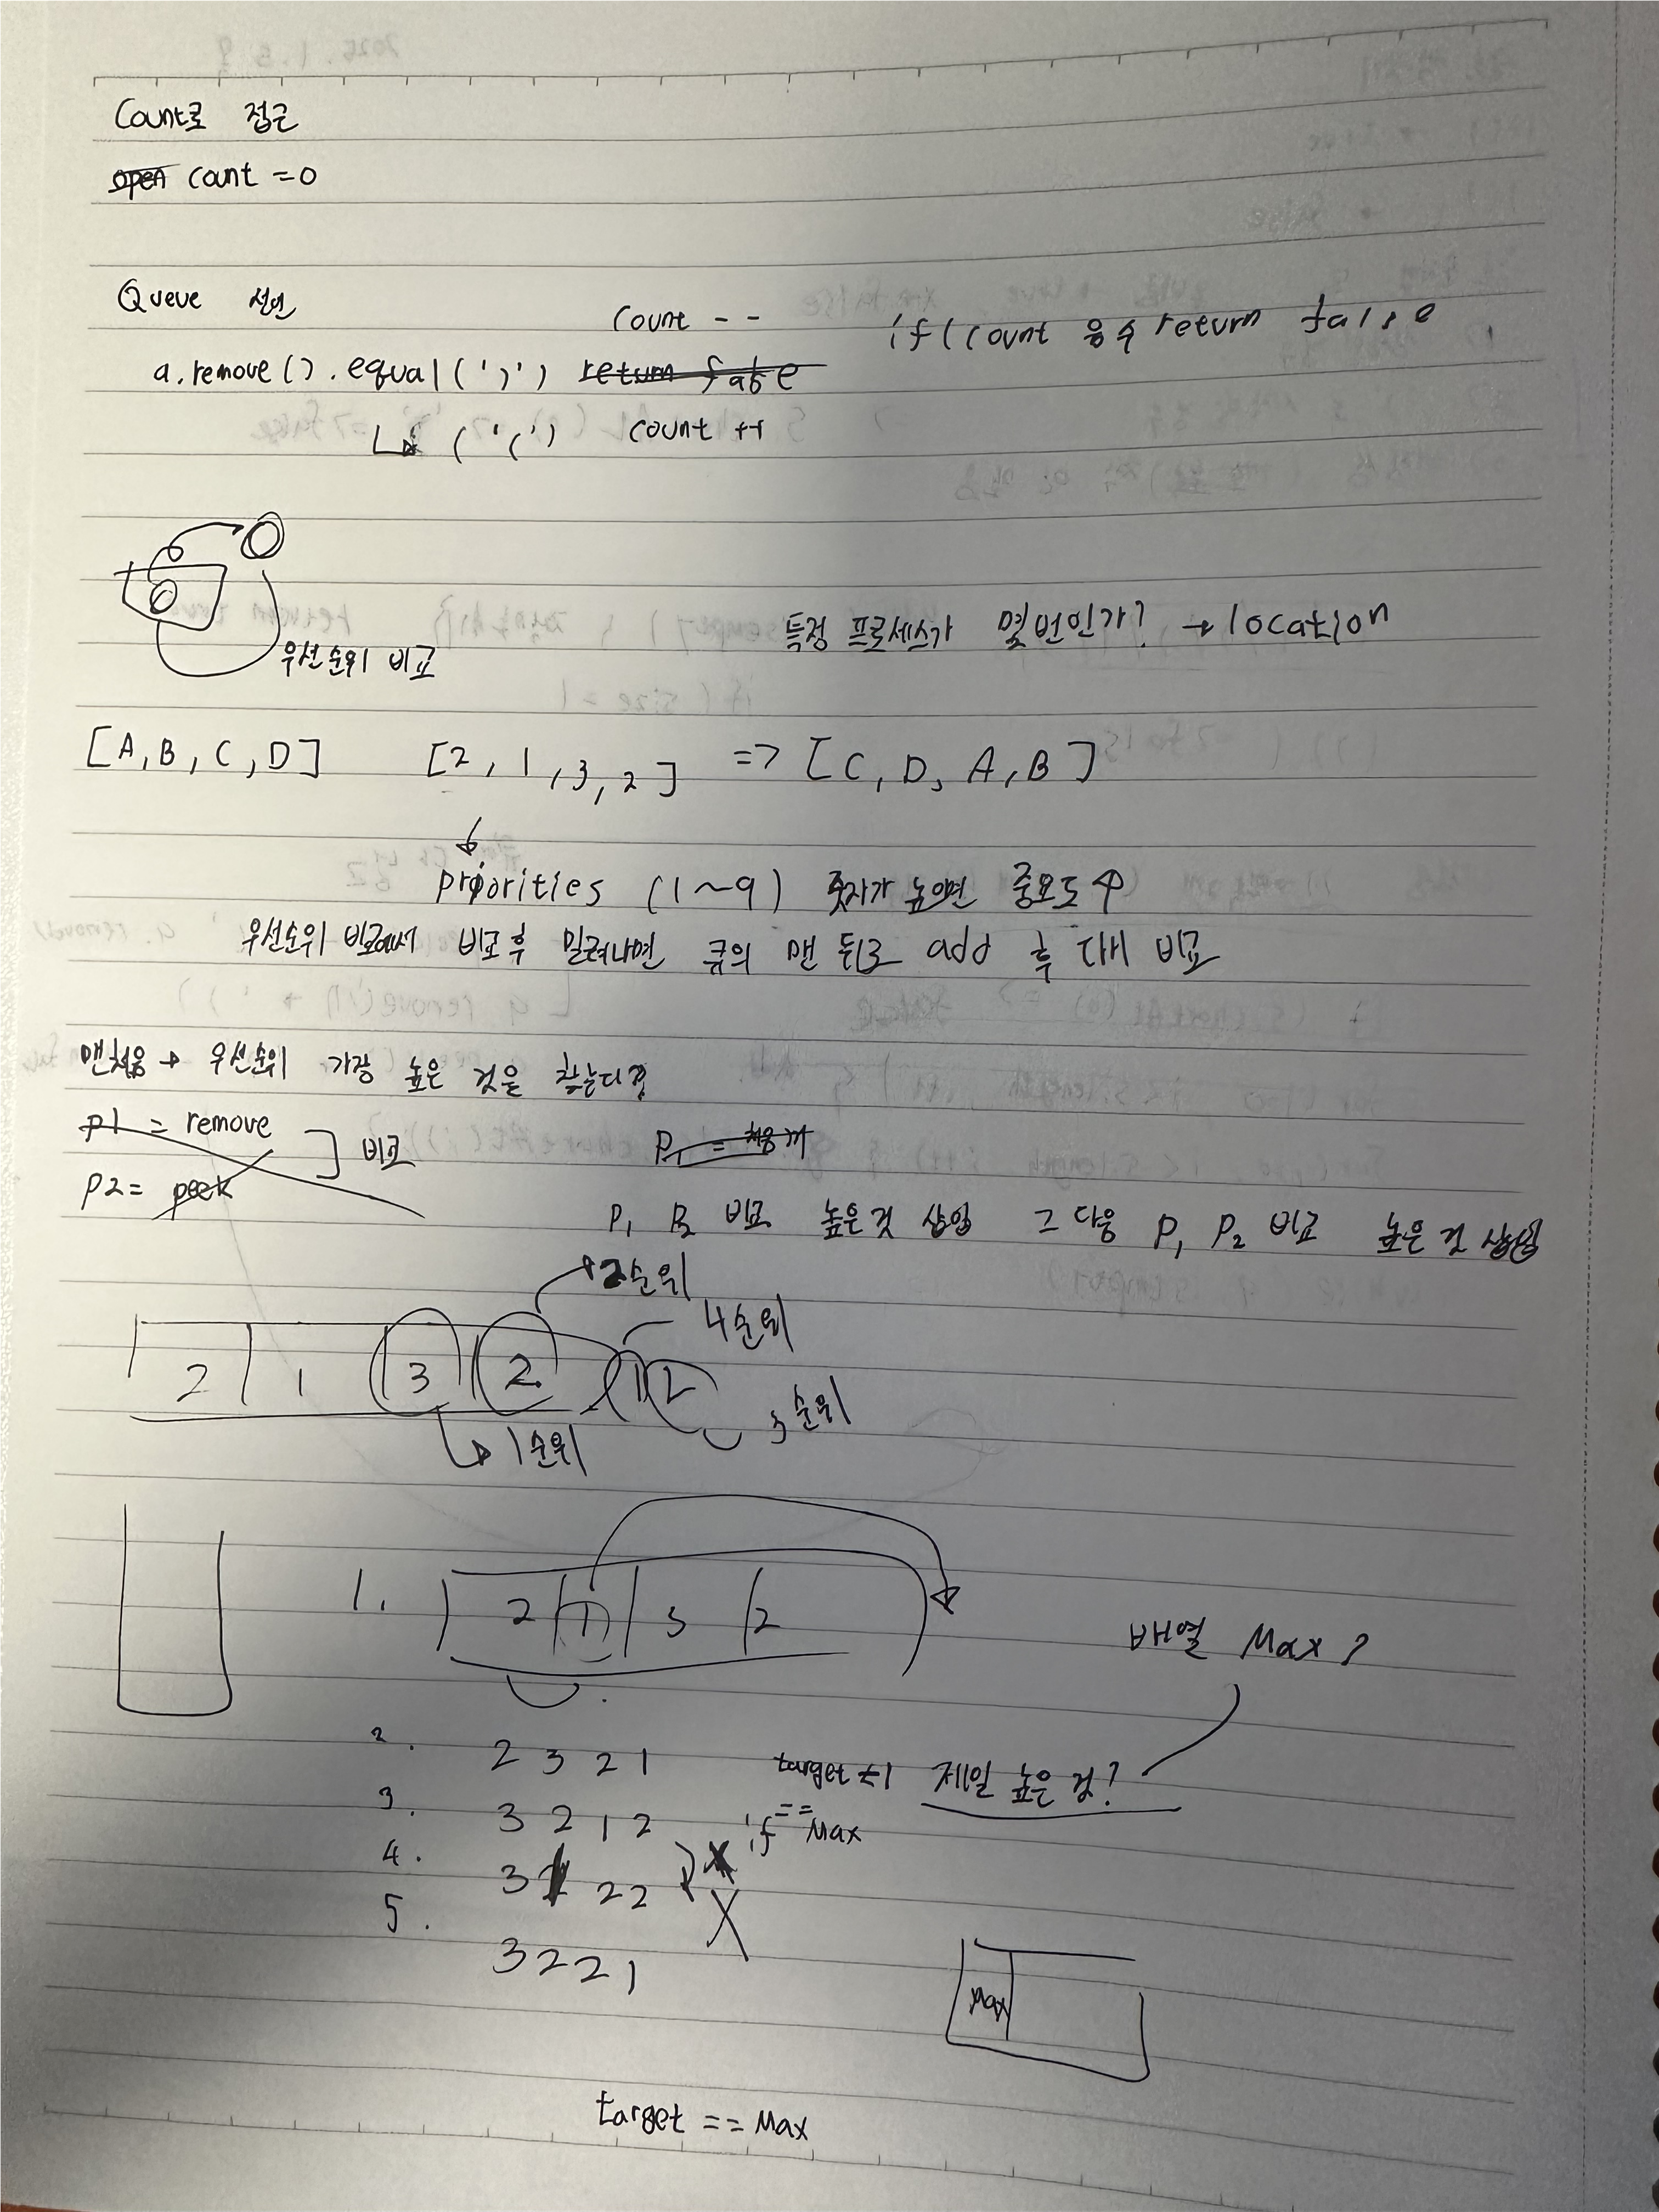 Count로 접근
open count = 0
Queue 선언
count - -
if (count 음수 return false
a.remove().equal(')') return false
('(') count ++
우선순위 비교
특정 프로세스가 몇번인가? → location
[A, B, C, D] [2, 1, 3, 2] => [C, D, A, B]
priorities (1~9) 숫자가 높으면 중요도 ↑
우선순위 비교에서 비교 후 밀려나면 큐의 맨 뒤로 add 후 다시 비교
맨처음 → 우선순위 가장 높은 것은 찾는다
p1 = remove
비교
P1 = 처음꺼
p2 = peek
P1 P2 비교 높은것 삽입 그 다음 P1 P2 비교 높은 것 삽입
2순위
4순위
2 1 3 2 1 2
3순위
1순위
1. 2 1 3 2
배열 Max?
2. 2 3 2 1
target = 1 제일 높은 것?
3. 3 2 1 2
if == Max
4. 3 2 2
5. 3 2 2 1
Max
target == Max